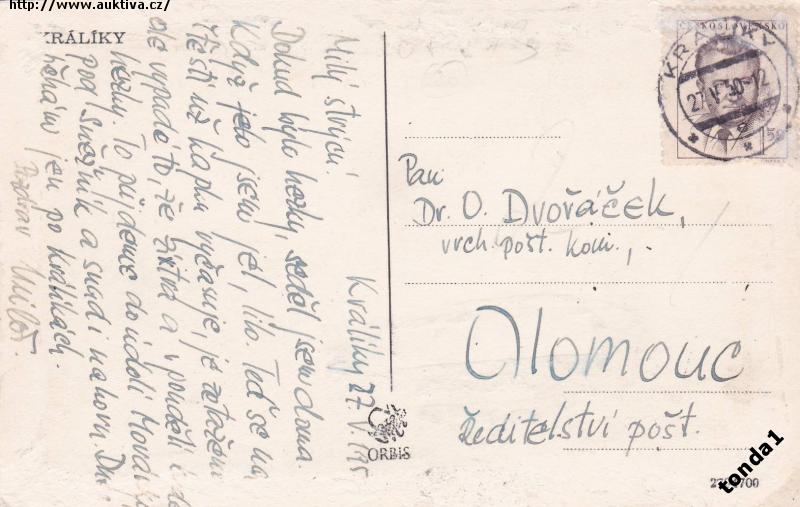 http://www.auktiva.cz/
KRÁLÍKY
Králíky 27. V. 195
Milý strýcu.
Dokud bylo hezky, seděl jsem doma.
Když jsem jel, lilo. Teď se na
štěstí už kapku vyčasuje, je zataženo
ale vypadá to, že zítra a v pondělí
hezky. To půjdeme do údolí Moravy
pod Sněžník a snad i nahoru. Dnes
běhám jen po Králíkách.
Pozdrav Miloš.
ČESKOSLOVENSKO
KRÁLÍKY
27.V.50-12
1.50
Pan
Dr. O. Dvořáček,
vrch. pošt. kom.,
Olomouc
Ředitelství pošt.
ORBIS
tonda1